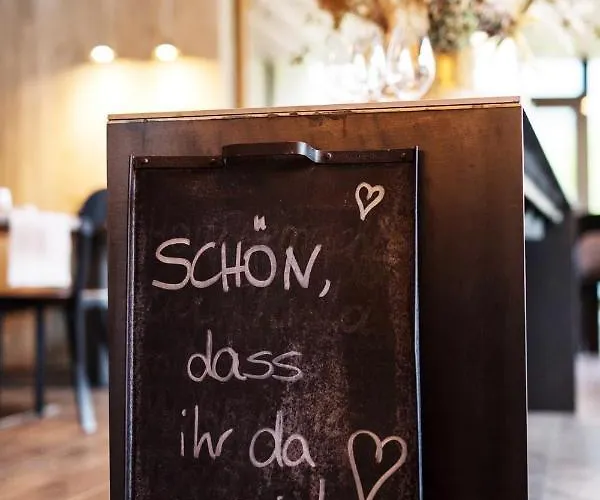 SCHÖN,
dass
ihr da